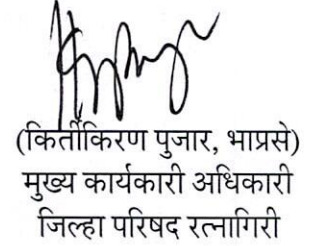 (किर्तीकिरण पुजार, भाप्रसे)
मुख्य कार्यकारी अधिकारी
जिल्हा परिषद रत्नागिरी